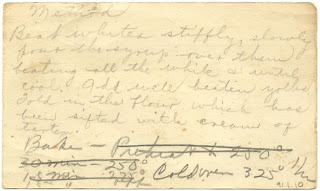 Method
Beat whites stiffly, slowly
pour the syrup over them
beating all the while & until
cool. Add well beaten yolks
Fold in the flour which has
been sifted with cream of
tarter.
Bake — Preheat to 250°
30 min — 250° Cold oven 325° 1 1/2
15 min 91.1.10